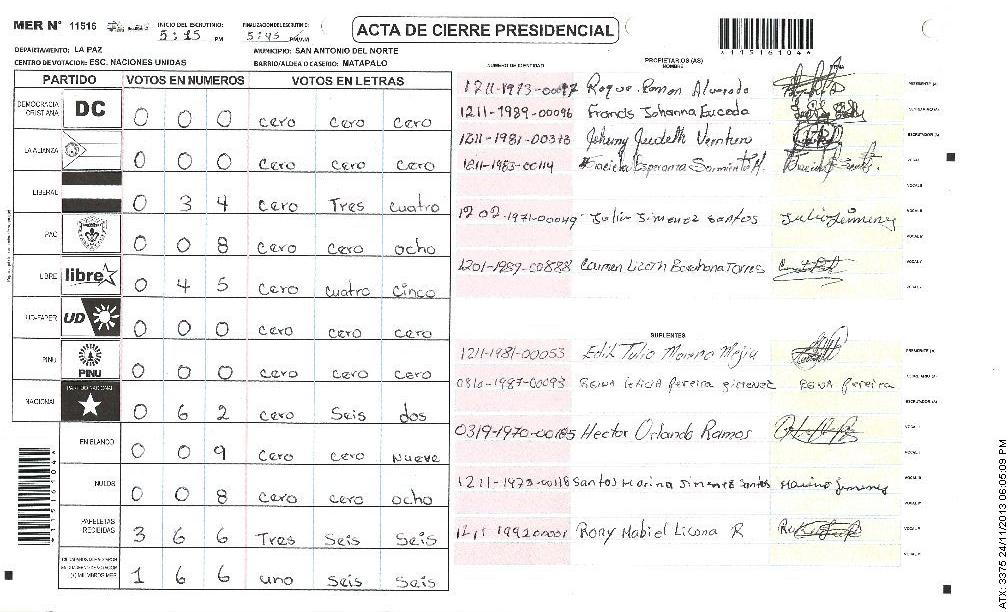 MER N° 11516
INICIO DEL ESCRUTINIO: 5:15 PM
FINALIZACION ESCRUTINIO: 5:45 PM
ACTA DE CIERRE PRESIDENCIAL
*11516104*
DEPARTAMENTO: LA PAZ
MUNICIPIO: SAN ANTONIO DEL NORTE
CENTRO DE VOTACION: ESC. NACIONES UNIDAS
BARRIO/ALDEA O CASERIO: MATAPALO
PARTIDO VOTOS EN NUMEROS VOTOS EN LETRAS
DEMOCRACIA CRISTIANA DC 0 0 0 cero cero cero
LA ALIANZA 0 0 0 cero cero cero
LIBERAL 0 3 4 cero Tres cuatro
PAC 0 0 8 cero cero ocho
LIBRE libre 0 4 5 cero cuatro cinco
UD-FAPER UD 0 0 0 cero cero cero
PINU PINU 0 0 0 cero cero cero
NACIONAL PARTIDO NACIONAL 0 6 2 cero Seis dos
EN BLANCO 0 0 9 cero cero nueve
NULOS 0 0 8 cero cero ocho
PAPELETAS RECIBIDAS 3 6 6 Tres Seis Seis
1 6 6 uno Seis Seis
NUMERO DE IDENTIDAD
PROPIETARIOS (AS)
NOMBRE
FIRMA
Roque Ramon Alvarado
1211-1989-00096 Francis Johanna Euceda
1211-1981-00373
1211-1983-00114 Esperanza Sarmiento
1202-1971-00049 Julio Jimenez Santos
1201-1989-00888 Carmen Torres
SUPLENTES
1211-1981-00053 Edih Tulio Moreno Mejia
0816-1987-00093 Reina leticia pereira gimenez
0319-1970-00185 Hector Orlando Ramos
1211-1973-00118 Santos Marina Jimenez Santos
Rony Mabiel Licona R
*1151604*
ATX: 3375 24/11/2013 06:05:09 PM